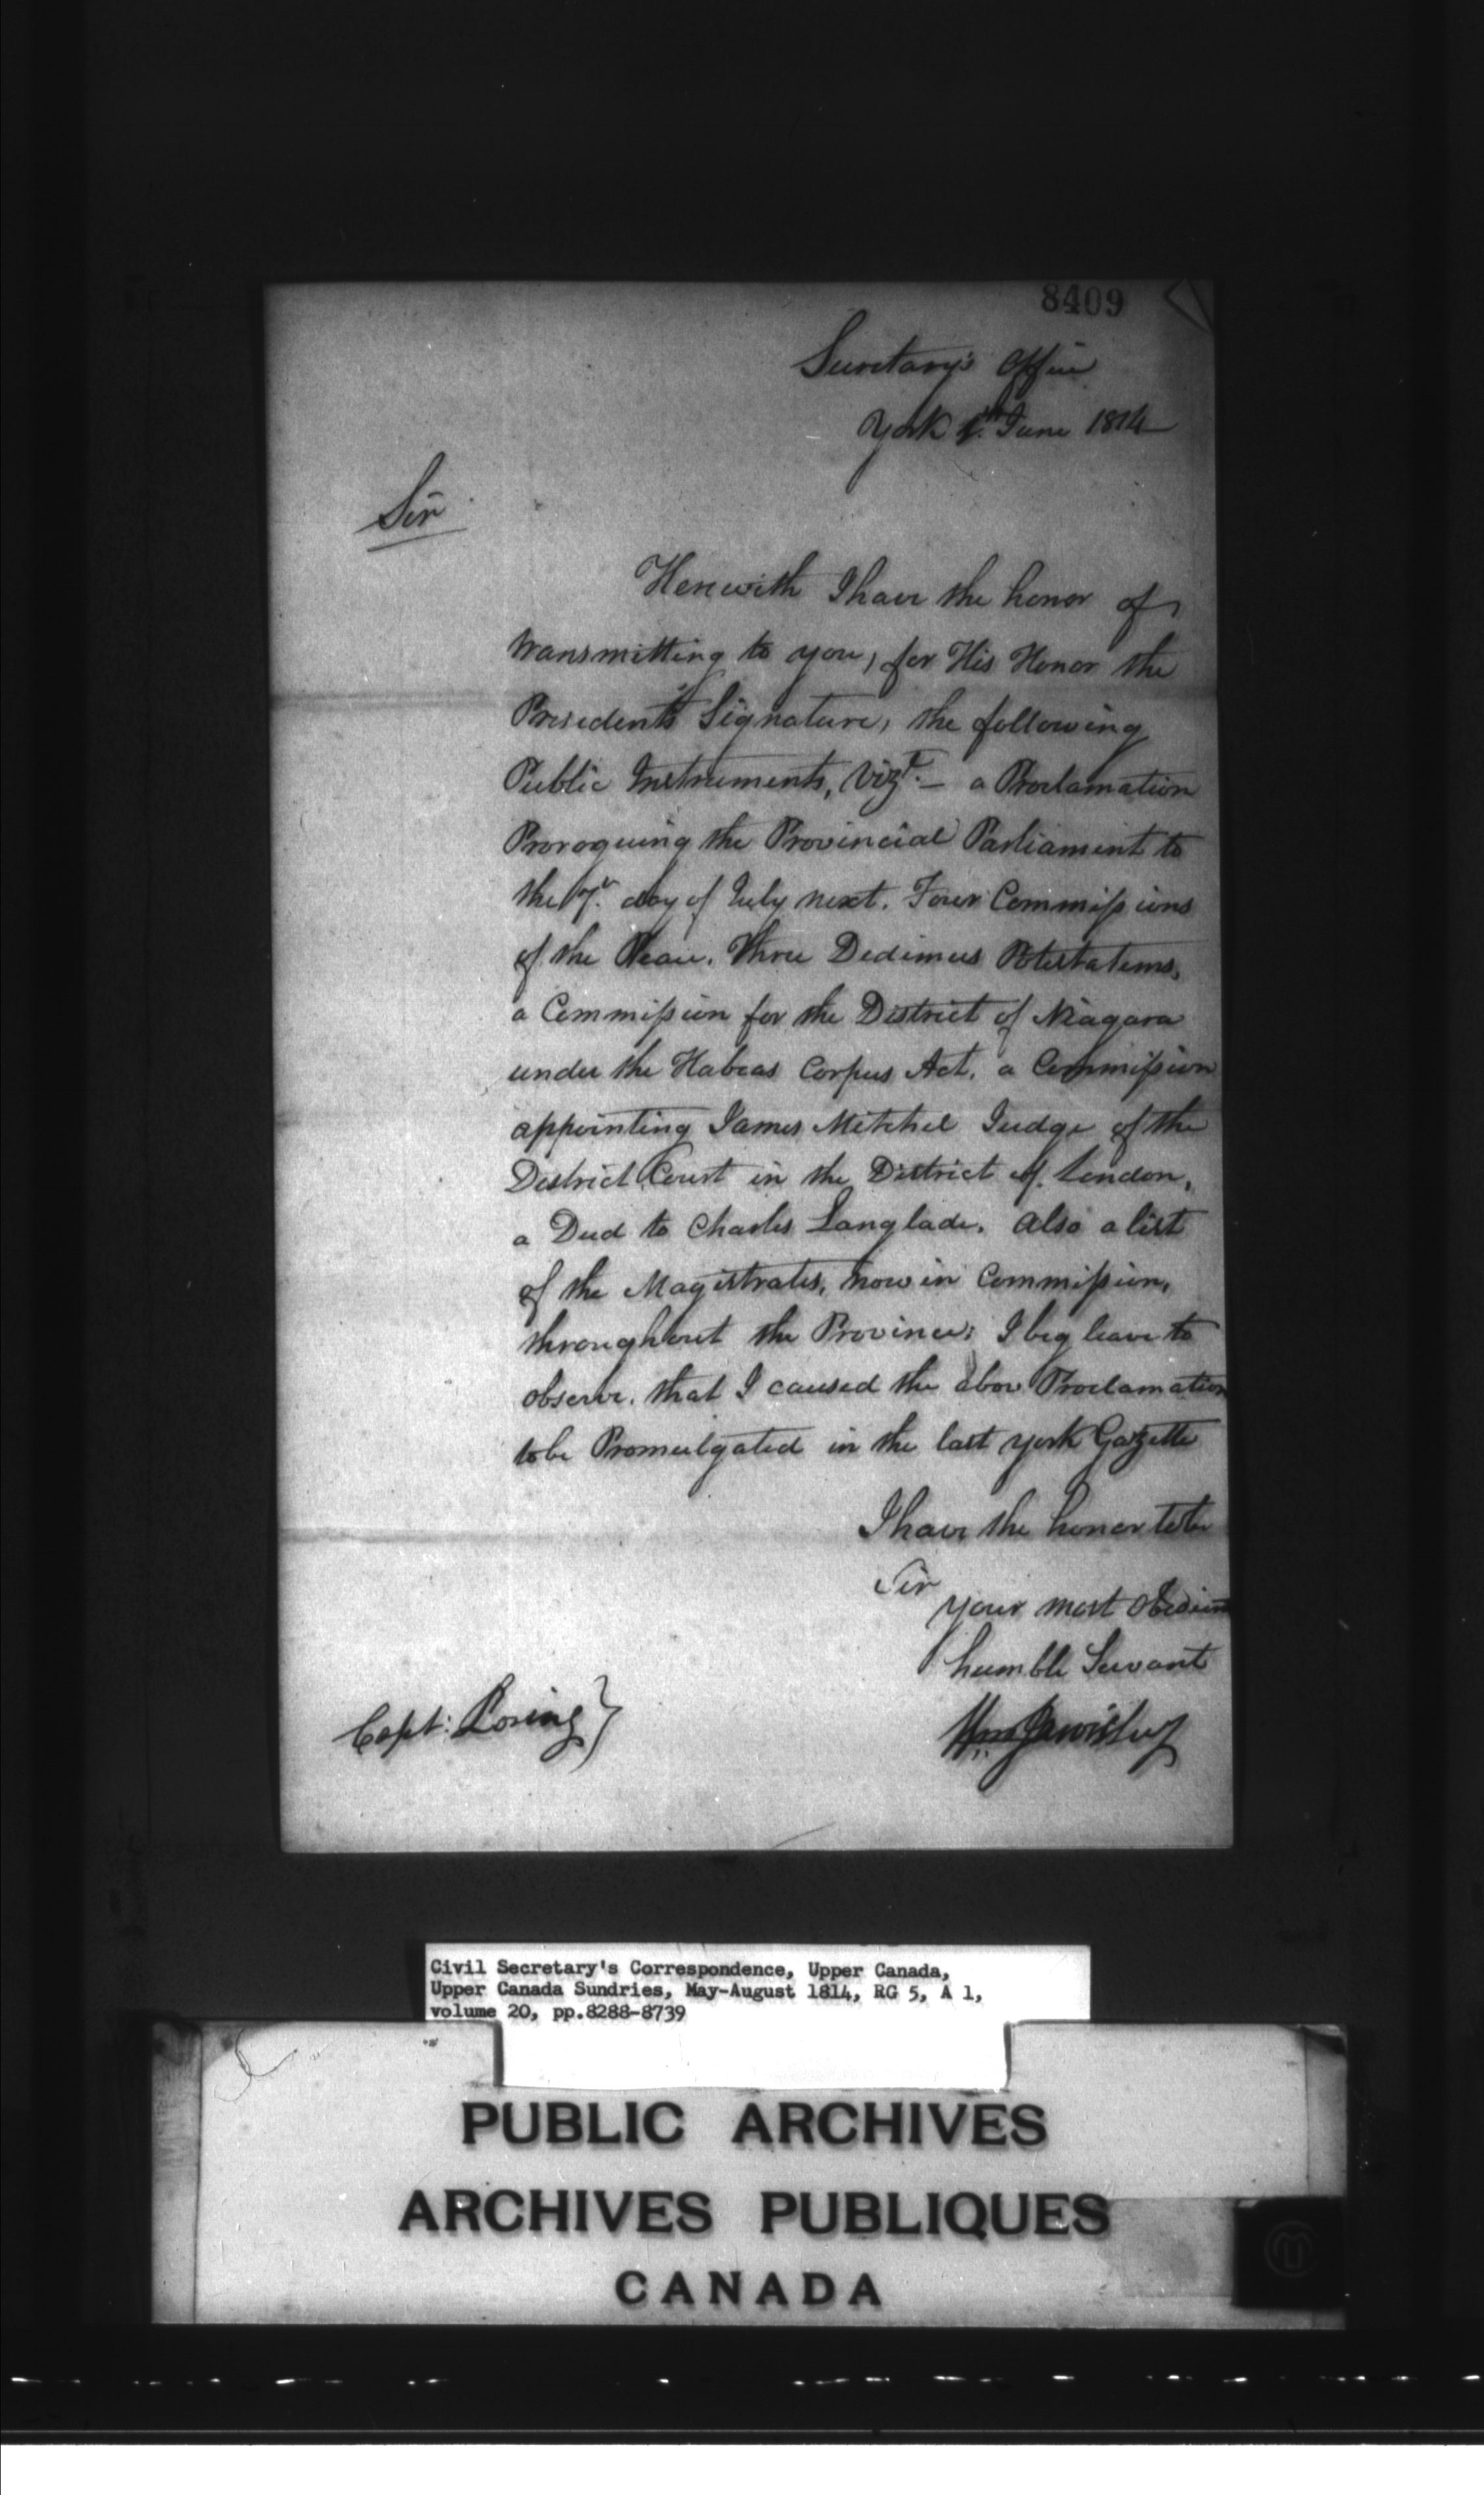 8409
Secretary's Office
York June 1814
Sir
Herewith I have the honor of
transmitting to you, for His Honor the
President's Signature, the following
Public Instruments, Vizt. — a Proclamation
Proroguing the Provincial Parliament to
the 7. day of July next. Four Commissions
of the Peace. Three Dedimus Potestatems,
a Commission for the District of Niagara
under the Habeas Corpus Act. a Commission
appointing James Mitchel Judge of the
District Court in the District of London,
a Deed to Charles Langlade. Also a list
of the Magistrates, now in Commission,
throughout the Province: I beg leave to
observe. that I caused the above Proclamation
to be Promulgated in the last York Gazette
I have the honor to be
Sir
your most obedient
humble Servant
Wm Jarvis Secy
Capt: Loring }
Civil Secretary's Correspondence, Upper Canada,
Upper Canada Sundries, May-August 1814, RG 5, A 1,
volume 20, pp.8288-8739
PUBLIC ARCHIVES
ARCHIVES PUBLIQUES
CANADA